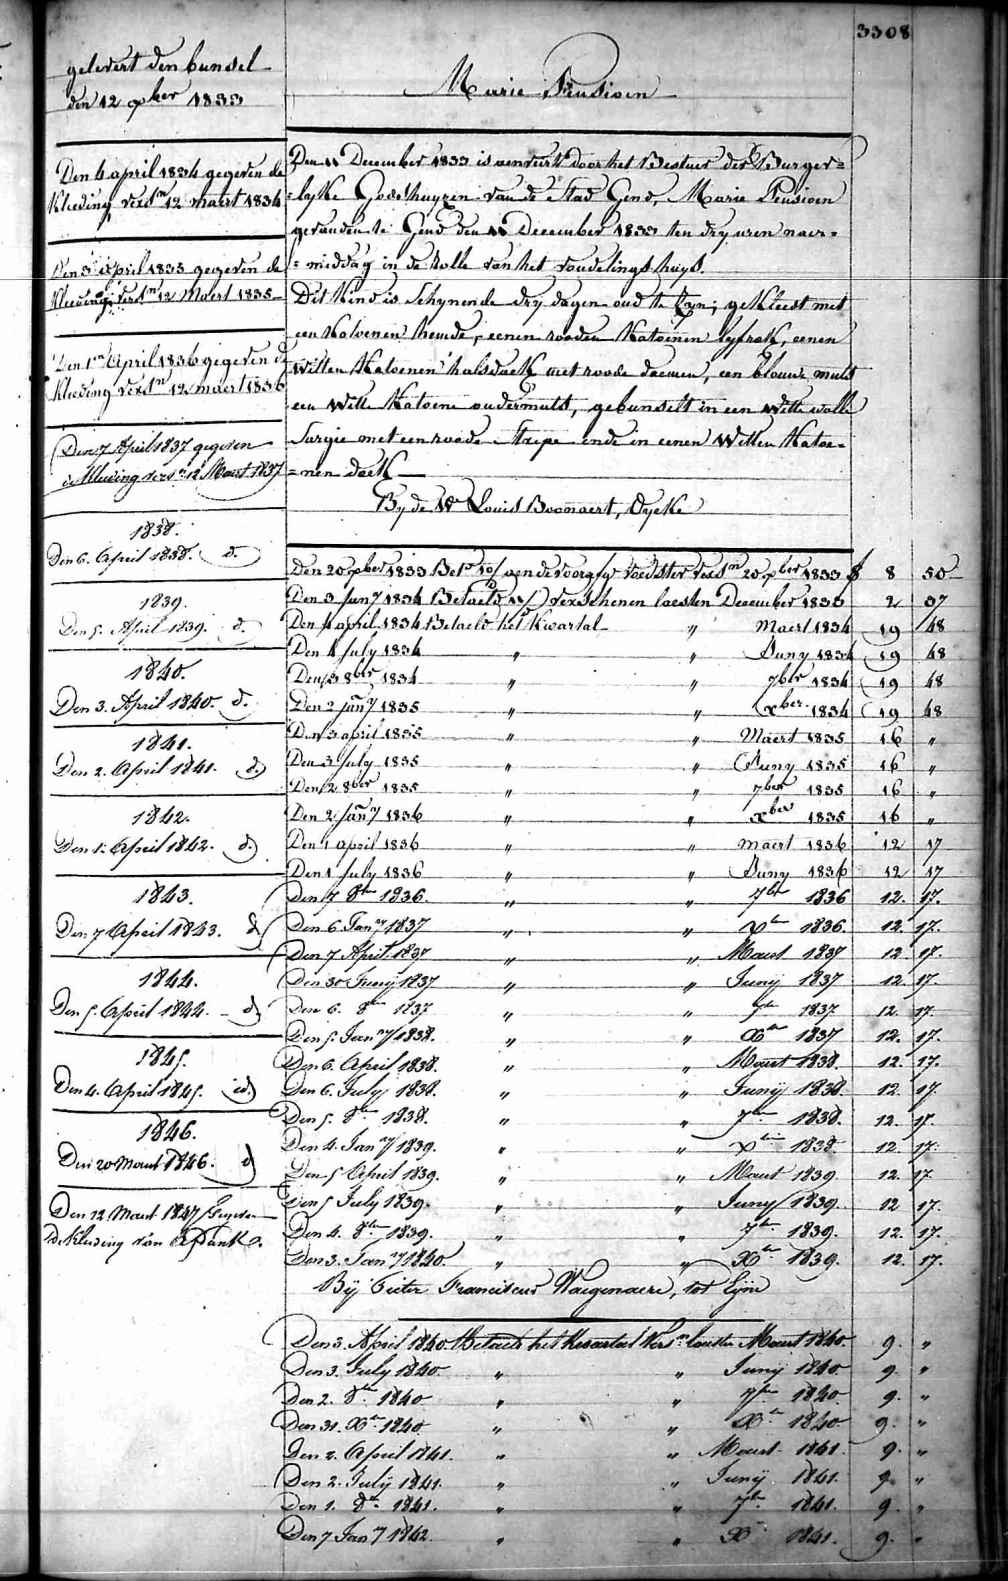 3308
gelevert den bunsel
den 12 xber 1833
Marie Pensioen
Den 4 april 1834 gegeven de
kleeding versn 12 maert 1834
Den 3 april 1835 gegeven de
kleeding versn 12 Maert 1835
Den 1n April 1836 gegeven de
kleeding versn 12 maert 1836
Den 7 April 1837 gegeven
de kleeding versn 12 Maert 1837
1838.
Den 6. April 1838. d.
1839.
Den 5. April 1839. d.
1840.
Den 3. April 1840. d.
1841.
Den 2. April 1841. d.
1842.
Den 1. April 1842. d.
1843.
Den 7 April 1843. d
1844.
Den 5. April 1844. d
1845.
Den 4. April 1845. id.
1846.
Den 20 Maert 1846. d
Den 12 Maert 1847 Gegeven
de kleeding van afdank.
Den 11 December 1833 is aenveirt door het Bestuer der Burger=
=lyke Godshuyzen van de stad Gend, Marie Pensioen
gevonden te Gend den 11 December 1833 ten dry uren naer=
=middag in de rolle van het vondelings huys.
Dit kind is schynende dry dagen oud te zyn; gekleest met
een katoenen hemde, eenen rooden katoenen lyfrok, eenen
witten katoenen halsdoek met roode bloemen, een blouwe muts
een witte katoene ondermuts, gebunselt in een witte wolle
sargie met een roode stripe ende in eenen witten katoe=
=nen doek
By de We Louis Boonaert, Eycke
Den 20 xber 1833 Betd 10/ aen de voorgse voedster versn 20 xber 1833 8 50
Den 3 Jany 1834 Betaeld verschenen laesten December 1833 2 37
Den 4 april 1834 Betaeld het kwartal " Maert 1834 19 48
Den 4 July 1834 " " Juny 1834 19 48
Den 3 8ber 1834 " " 7ber 1834 19 48
Den 2 Jany 1835 " " xber 1834 19 48
Den 3 april 1835 " " Maert 1835 16 "
Den 3 July 1835 " " Juny 1835 16 "
Den 2 8ber 1835 " " 7ber 1835 16 "
Den 2 Jany 1836 " " xber 1835 16 "
Den 1 april 1836 " " maert 1836 12 17
Den 1 July 1836 " " Juny 1836 12 17
Den 7 8br 1836 " " 7br 1836 12. 17.
Den 6 Jany 1837 " " Xbr 1836. 12. 17.
Den 7 April 1837 " " Maert 1837 12 17.
Den 30 Juny 1837 " " Junij 1837 12. 17.
Den 6. 8br 1837 " " 7br 1837 12. 17.
Den 5. Jany 1838. " " Xbr 1837 12. 17.
Den 6. April 1838. " " Maert 1838. 12. 17.
Den 6. July 1838. " " Junij 1838. 12. 17.
Den 5. 8br 1838. " " 7br 1838. 12. 17.
Den 4. Jany 1839. " " Xbr 1838 12. 17.
Den 5 April 1839. " " Maert 1839 12. 17
Den 5 July 1839. " " Juny 1839. 12 17.
Den 4. 8br 1839. " " 7br 1839. 12. 17.
Den 3. Jany 1840. " " Xbr 1839. 12. 17.
Bij Pieter Franciscus Waegenaere, tot Eyne
Den 3. April 1840. Betaelt het Kwartal Versn laetste Maert 1840. 9. "
Den 3. July 1840. " " Junij 1840 9. "
Den 2. 8br 1840 " " 7br 1840 9. "
Den 31. Xbr 1840 " " Xbr 1840 9. "
Den 2. April 1841. " " Maert 1841 9. "
Den 2. July 1841. " " Junij 1841. 9 "
Den 1. 8br 1841. " " 7br 1841. 9. "
Den 7 Jany 1842. " " X 1841. 9. "